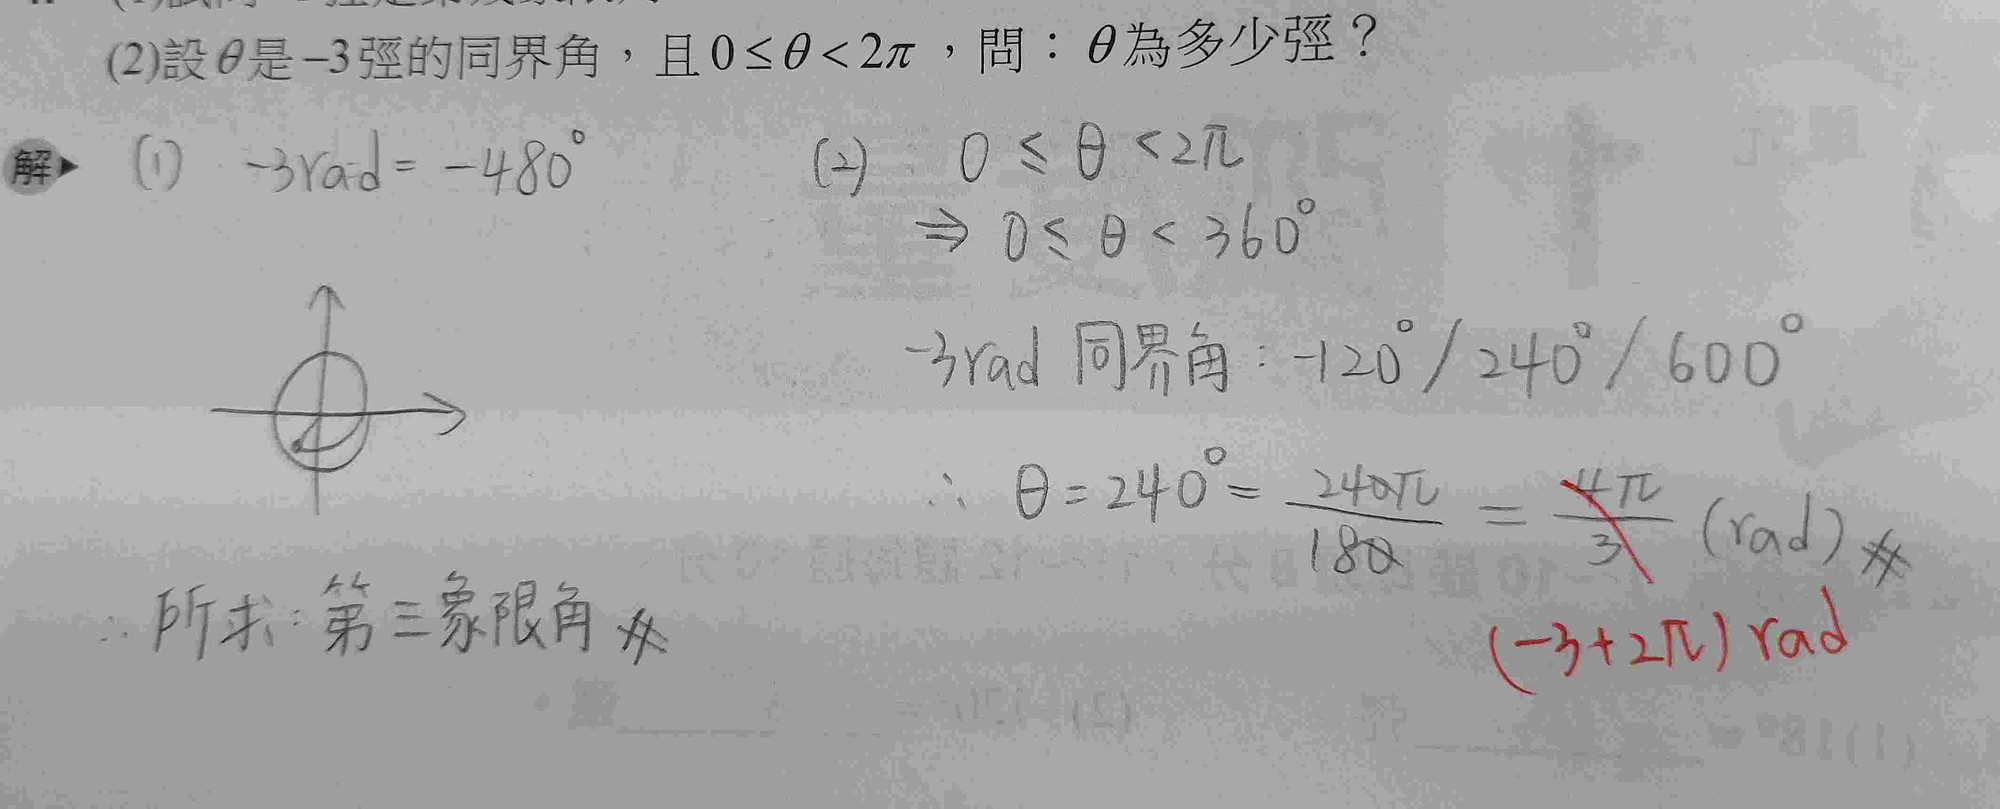 (2)設θ是−3弳的同界角，且0≤θ<2π，問：θ為多少弳？
解▶ (1) -3rad = -480°
∴ 所求：第三象限角 #
(2) 0 ≤ θ < 2π
⇒ 0 ≤ θ < 360°
-3rad 同界角：-120° / 240° / 600°
∴ θ = 240° = 240π/180 = 4π/3 (rad) #
(-3+2π) rad